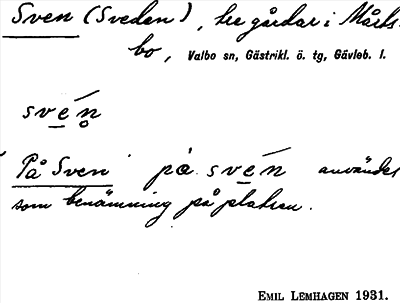 Sven (Sveden), tre gårdar i Mårts-
bo, Valbo sn, Gästrikl. ö. tg, Gävleb. l.
svén
"På Sven" på svén användes
som benämning på platsen.
EMIL LEMHAGEN 1931.